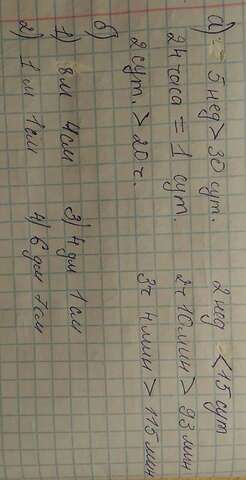 а) 5 нед > 30 сут. 2 нед < 15 сут
24 часа = 1 сут. 2ч 10 мин > 93 мин
2 сут. > 20 ч. 3ч 4 мин > 115 мин
б)
1) 8 м 4 см 3) 4 дм 1 см
2) 1 м 1 см 4) 6 дм 1 см